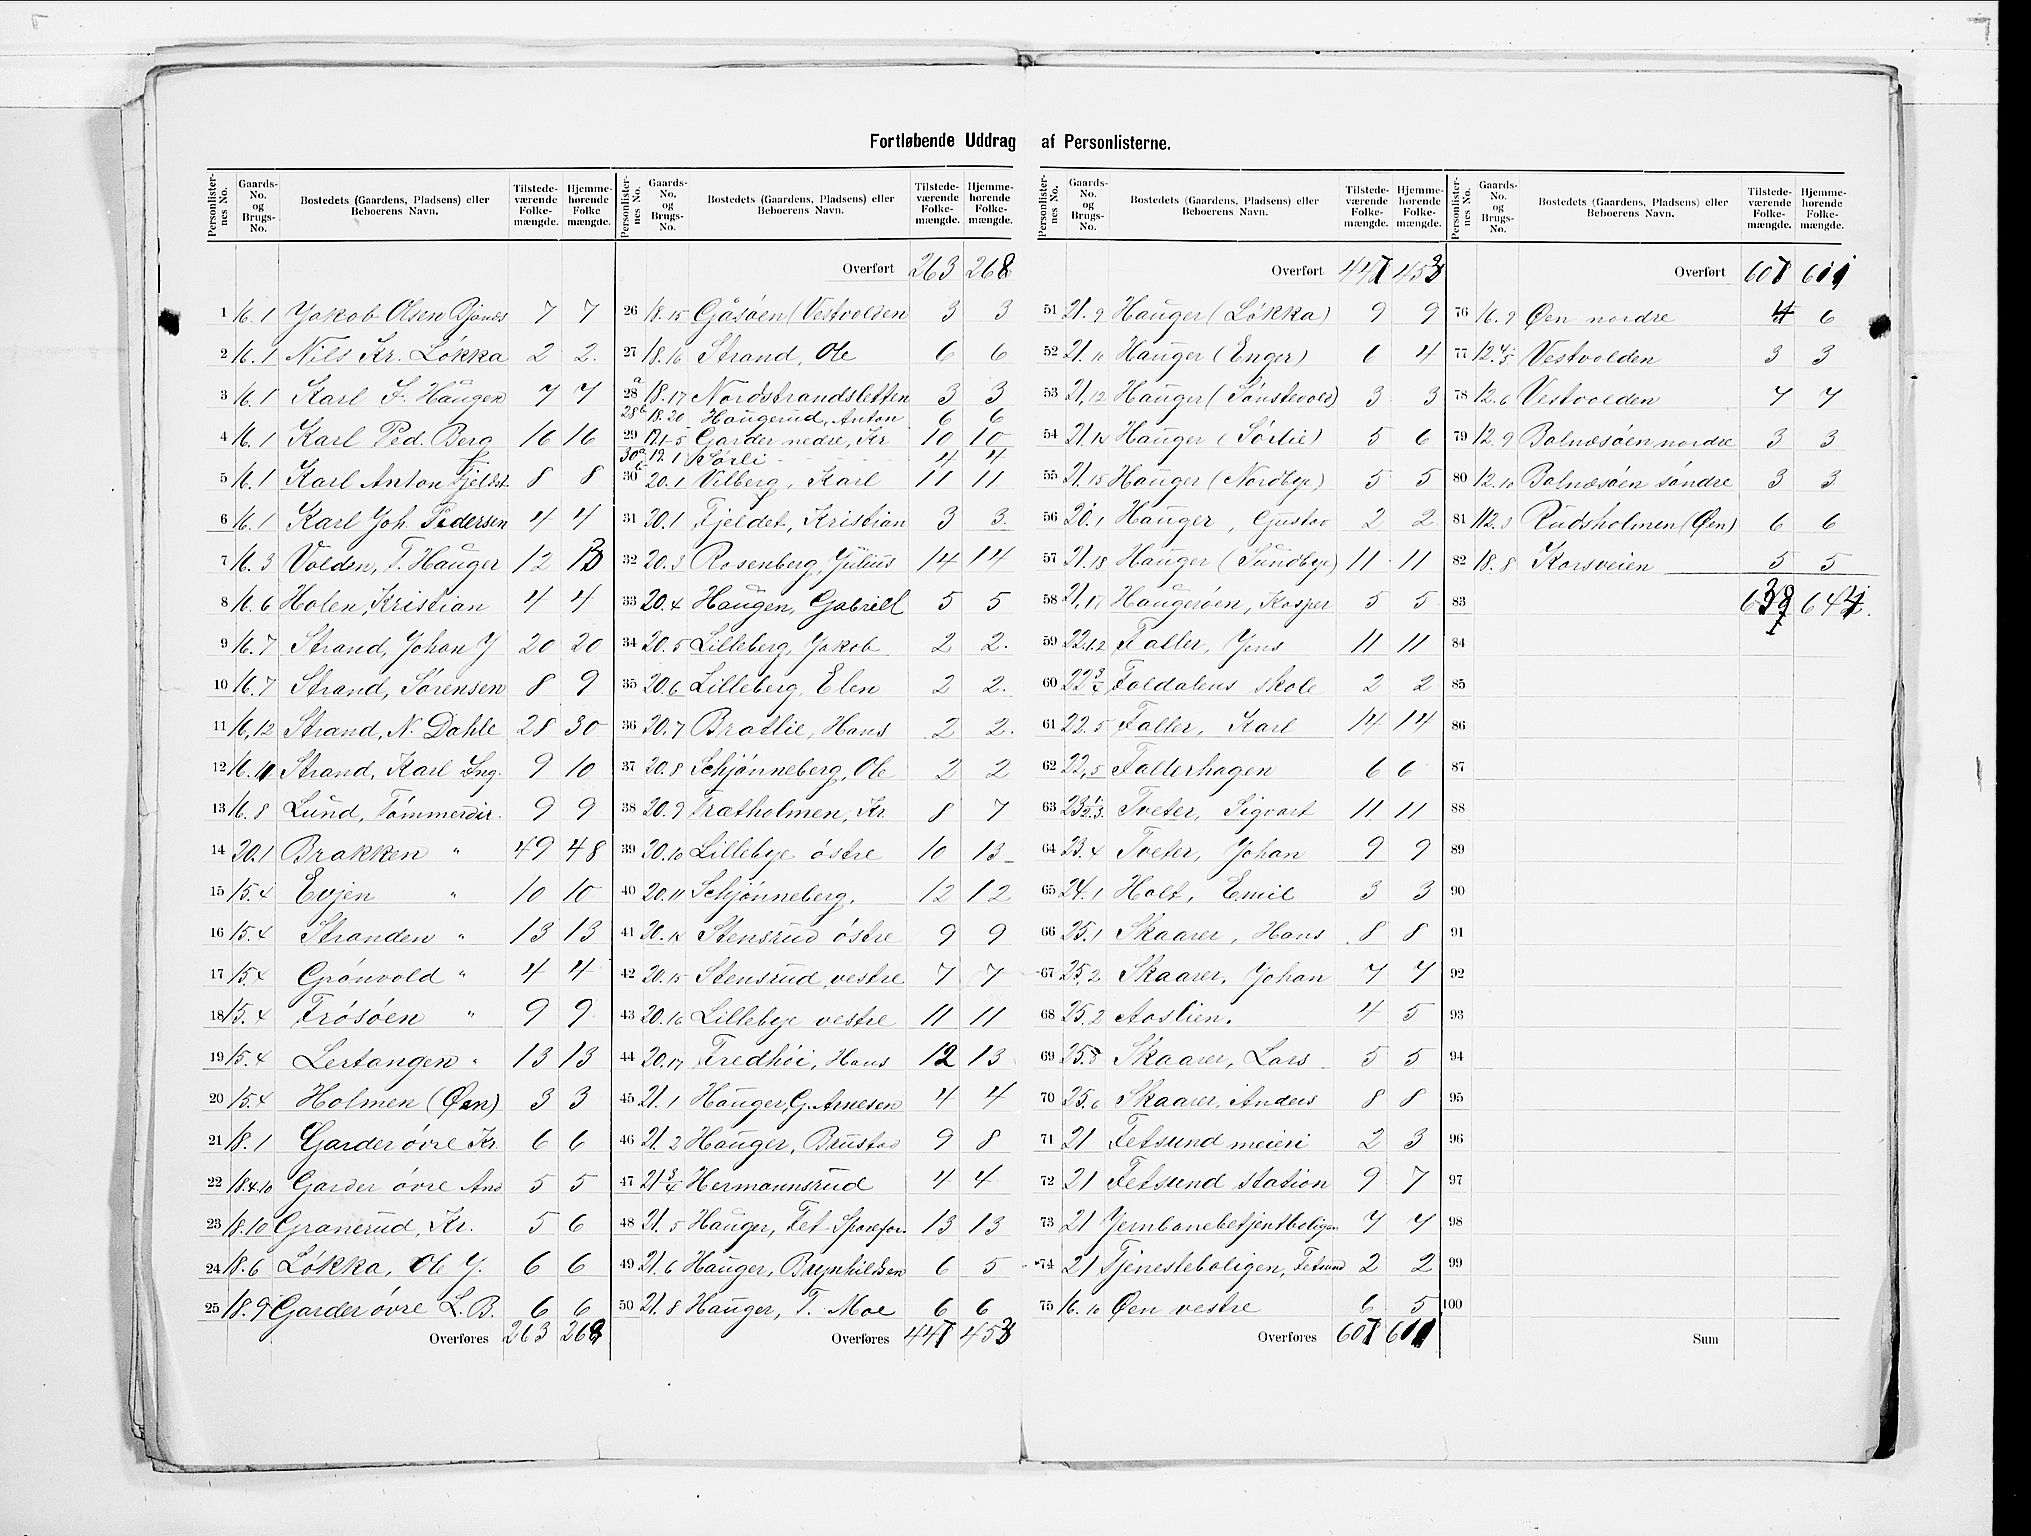 Fortløbende Uddrag af Personlisterne.
Personlisternes No. Gaards-No. og Brugs-No. Bostedets (Gaardens, Pladsens) eller Beboerens Navn. Tilstedeværende Folkemængde. Hjemmehørende Folkemængde.
1 16.1 Jakob Olsen 7 7
2 16.1 Nils Kr. Løkka 2 2.
3 16.1 Karl F. Haugen 7 7
4 16.1 Karl Ped. Berg 16 16
5 16.1 Karl Anton Fjeldst. 8 8
6 16.1 Karl Joh. Pedersen 4 4
7 16.3 Volden, T. Hauger 12
8 16.6 Holen, Kristian 4 4
9 16.7 Strand, Johan J 20 20
10 16.7 Strand, Sørensen 8 9
11 16,12 Strand, N. Dahle 28 30
12 16.11 Strand, Karl Ing. 9 10
13 16.8 Lund, Tømmerdir. 9 9
14 20.1 Brakken " 49 48
15 15.4 Evjen " 10 10
16 15.4 Stranden " 13 13
17 15.4 Grönvold " 4 4
18 15.4 Frösöen " 9 9
19 15.4 Lertangen " 13 13
20 15.4 Holmen (Øen) 3 3
21 18.1 Garder øvre Kr. 6 6
22 18.4.10 Garder øvre And 5 5
23 18.10 Granerud, Kr. 5 6
24 18.6 Løkka, Ole J. 6 6
25 18.9 Garder øvre L.B. 6 6
Overføres 263 268
Personlisternes No. Gaards-No. og Brugs-No. Bostedets (Gaardens, Pladsens) eller Beboerens Navn. Tilstedeværende Folkemængde. Hjemmehørende Folkemængde.
Overført 263 268
26 18.15 Gåsöen (Vestvolden 3 3
27 18.16 Strand, Ole 6 6
28a 18.17 Nordstrandsletten 3 3
28b 18.20 Haugerud, Anton 6 6
29 Garder nedre, Kr 10 10
30a 12.1 Sørli 4 4
30b 20.1 Vilberg, Karl 11 11
31 20.1 Fjeldet, Kristian 3 3.
32 20.3 Rosenberg, Julius 14 14
33 20.4 Haugen, Gabriell 5 5
34 20.5 Lilleberg, Jakob 2 2.
35 20.6 Lilleberg, Elen 2 2.
36 20.7 Bratlie, Hans 2 2.
37 20.8 Schjønneberg, Ole 2 2
38 20.9 Trætholmen, Kr. 8 7
39 20.10 Lillebye östre 10 13
40 20.11 Schjønneberg. 12 12
41 20.12 Stensrud östre 9 9
42 20.15 Stensrud, vestre 7 7
43 20.16 Lillebye vestre 11 11
44 20.17 Fredhöi, Hans 12 13
45 21.1 Hauger, G. Arnesen 4 4
46 21.2 Hauger, Brustad 9 8
47 21.3/4 Hermannsrud 4 4
48 21.5 Hauger, Fet Sparefor. 13 13
49 21.6 Hauger, Brynhildsen 6 5
50 21.8 Hauger, T. Moe 6 6
Overføres 447 453
Personlisternes No. Gaards-No. og Brugs-No. Bostedets (Gaardens, Pladsens) eller Beboerens Navn. Tilstedeværende Folkemængde. Hjemmehørende Folkemængde.
Overført 447 453
51 21.9 Hauger (Løkka) 9 9
52 21.10 Hauger (Enger) 6 4
53 21.12 Hauger (Sønstevold) 3 3
54 21.14 Hauger (Sørlie) 5 6
55 21.15 Hauger (Nordbye) 5 5
56 20.1 Hauger, Gustav 2 2
57 21.18 Hauger (Sundbye) 11 11
58 21.17 Haugerøen, Kasper 5 5
59 22.1.2 Faller, Jens 11 11
60 22 3/4 Faldalens skole 2 2
61 22.5 Faller, Karl 14 14
62 22,5 Fallerhagen 6 6
63 23 Tveter, Sigvart 11 11
64 23.4 Tveter, Johan 9 9
65 24.1 Holt, Emil 3 3
66 25.1 Skaarer, Hans 8 8
67 25.2 Skaarer, Johan 7 7
68 25.2 Aaslien. 4 5
69 25.8 Skaarer, Lars 5 5
70 25.6 Skaarer, Anders 8 8
71 21 Fetsund meieri 2 3
72 21 Fetsund station 9 7
73 21 Jernbanebetjentboligen 7 7
74 21 Tjenesteboligen, Fetsund 2 2
75 16.10 Øen vestre 6 5
Overføres 607 611
Personlisternes No. Gaards-No. og Brugs-No. Bostedets (Gaardens, Pladsens) eller Beboerens Navn. Tilstedeværende Folkemængde. Hjemmehørende Folkemængde.
Overført 607 611
76 16.9 Øen nordre 4 6
77 12.4/5 Vestvolden 3 3
78 12.6 Vestvolden 7 7
79 12.9 Balnæsøen nordre 3 3
80 12.10 Balnæsøen söndre 3 3
81 112.3 Rudsholmen (Øen) 6 6
82 18.8 Korsveien 5 5
83
84
85
86
87
88
89
90
91
92
93
94
95
96
97
98
99
100
Sum